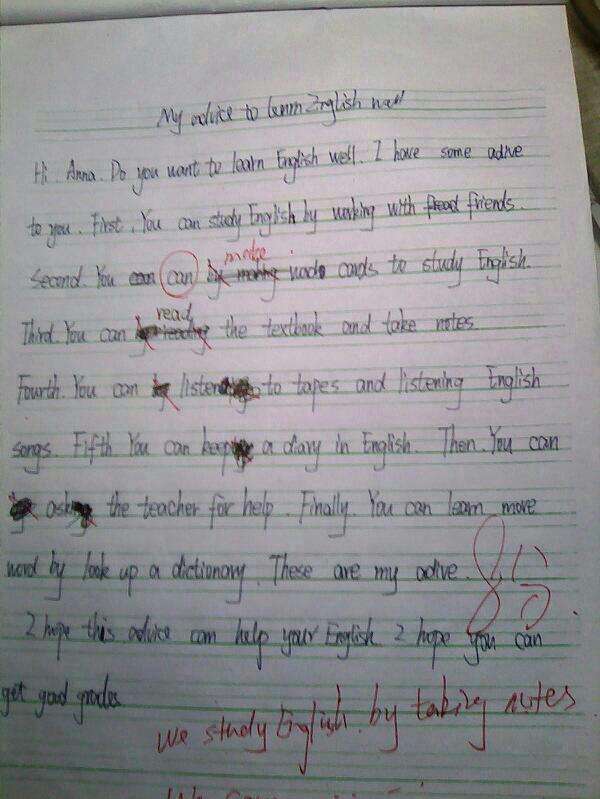 My advice to learn English well
Hi. Anna. Do you want to learn English well. I have some adive
to you. First. You can study English by working with friends.
make
Second. You can can by making cards to study English.
read
Third. You can by reading the textbook and take notes
Fourth. You can listen to tapes and listening English
songs. Fifth You can keep a diary in English. Then. You can
ask the teacher for help. Finally. You can learn more
word by look up a dictionary. These are my adive.
85
I hope this advice can help your English. I hope you can
get good grades
We study English by taking notes
We can